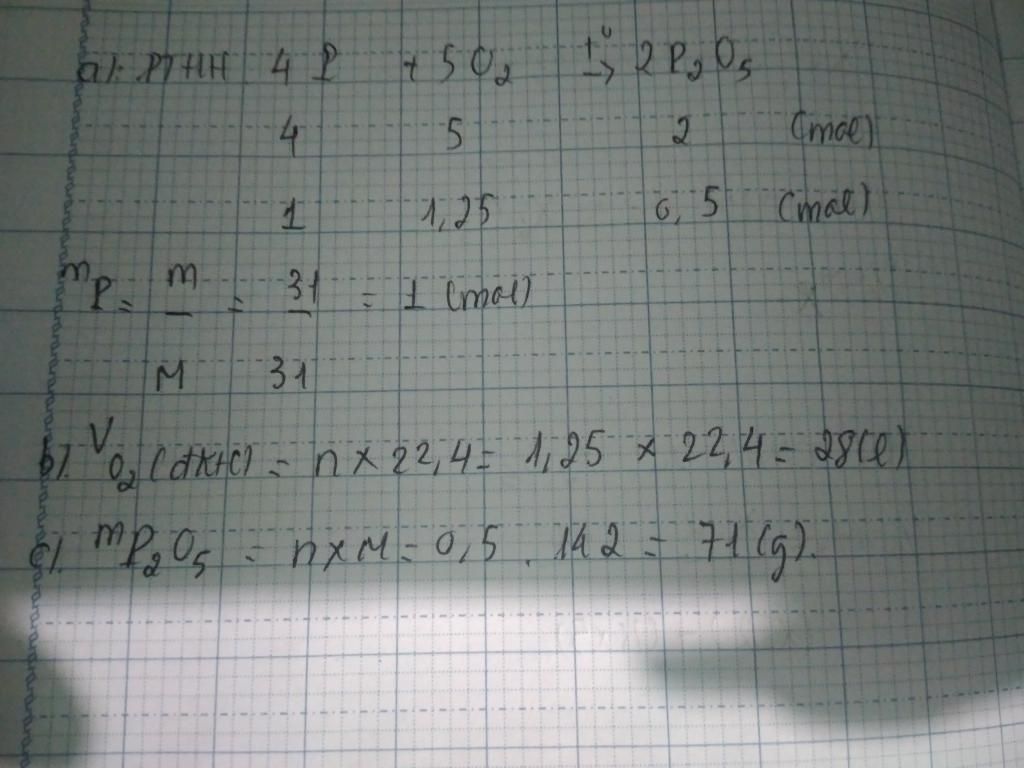 a). PTHH 4 P + 5 O₂ t⁰→ 2 P₂O₅
4 5 2 (mol)
1 1,25 0,5 (mol)
mP = m = 31 = 1 (mol)
M 31
b). VO₂ (đktc) = n × 22,4 = 1,25 × 22,4 = 28(l)
c). mP₂O₅ = n × M = 0,5 . 142 = 71 (g).